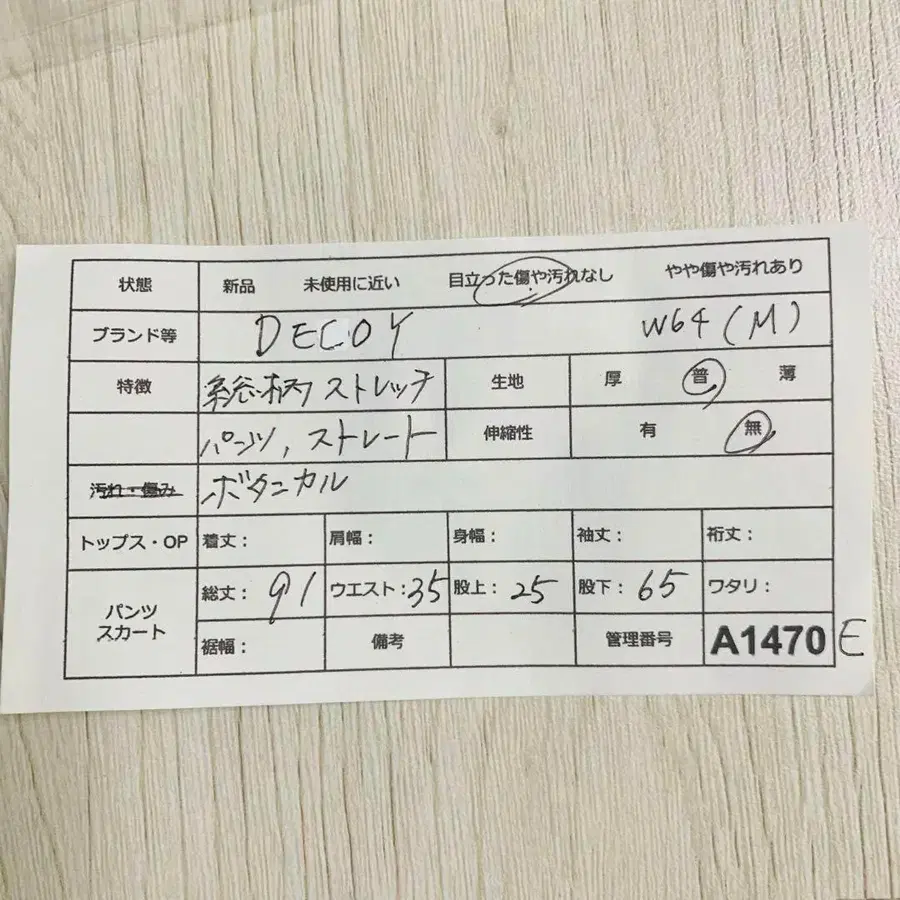 状態 新品 未使用に近い 目立った傷や汚れなし やや傷や汚れあり
ブランド等 DECOY W64(M)
特徴 総柄ストレッチ 生地 厚 普 薄
パンツ,ストレート 伸縮性 有 無
汚れ・傷み ボタニカル
トップス・OP 着丈: 肩幅: 身幅: 袖丈: 裄丈:
パンツ スカート 総丈:91 ウエスト:35 股上:25 股下:65 ワタリ:
裾幅: 備考 管理番号 A1470E